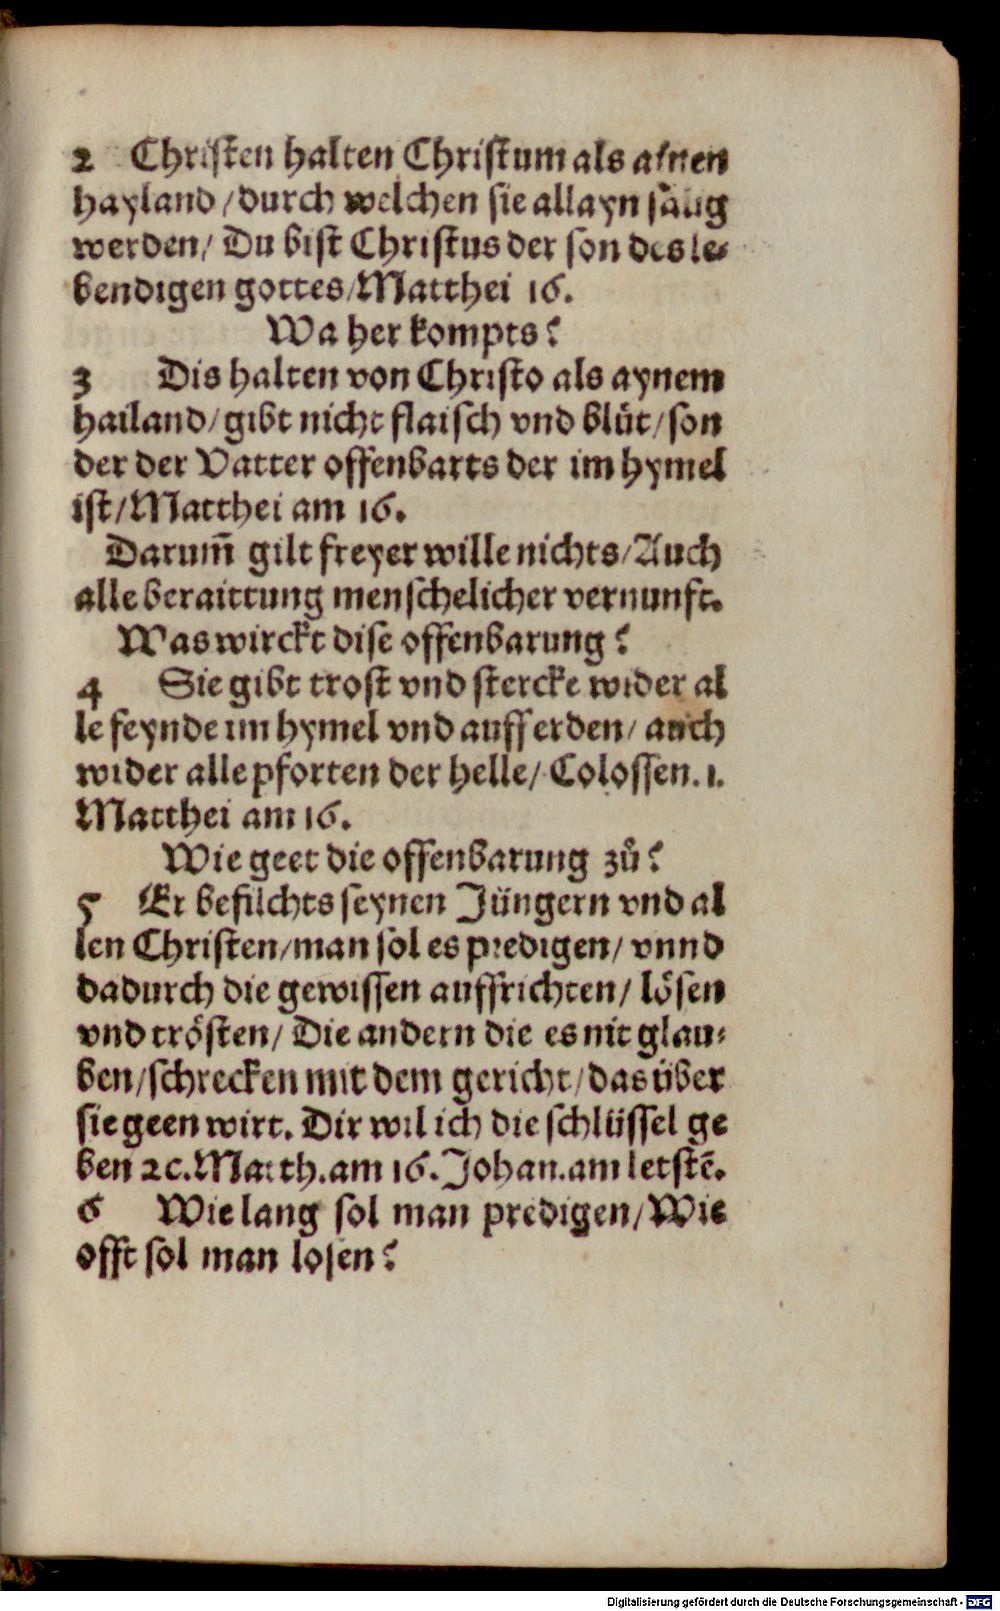 2 Christen halten Christum als ainen
hayland / durch welchen sie allayn sälig
werden / Du bist Christus der son des le⸗
bendigen gottes / Matthei 16.
Wa her kompts?
3 Dis halten von Christo als aynem
hailand / gibt nicht flaisch vnd blůt / son
der der Vatter offenbarts der im hymel
ist / Matthei am 16.
Darum̃ gilt freyer wille nichts / Auch
alle beraittung menschelicher vernunft.
Was wirckt dise offenbarung?
4 Sie gibt trost vnd stercke wider al
le feynde im hymel vnd auff erden / auch
wider alle pforten der helle / Colossen. 1.
Matthei am 16.
Wie geet die offenbarung zů?
5 Er befilchts seynen Jüngern vnd al
len Christen / man sol es predigen / vnnd
dadurch die gewissen auffrichten / lösen
vnd trösten / Die andern die es nit glau⸗
ben / schrecken mit dem gericht / das über
sie geen wirt. Dir wil ich die schlüssel ge
ben ⁊c. Matth. am 16. Johan. am letstẽ.
6 Wie lang sol man predigen / Wie
offt sol man losen?
Digitalisierung gefördert durch die Deutsche Forschungsgemeinschaft - DFG